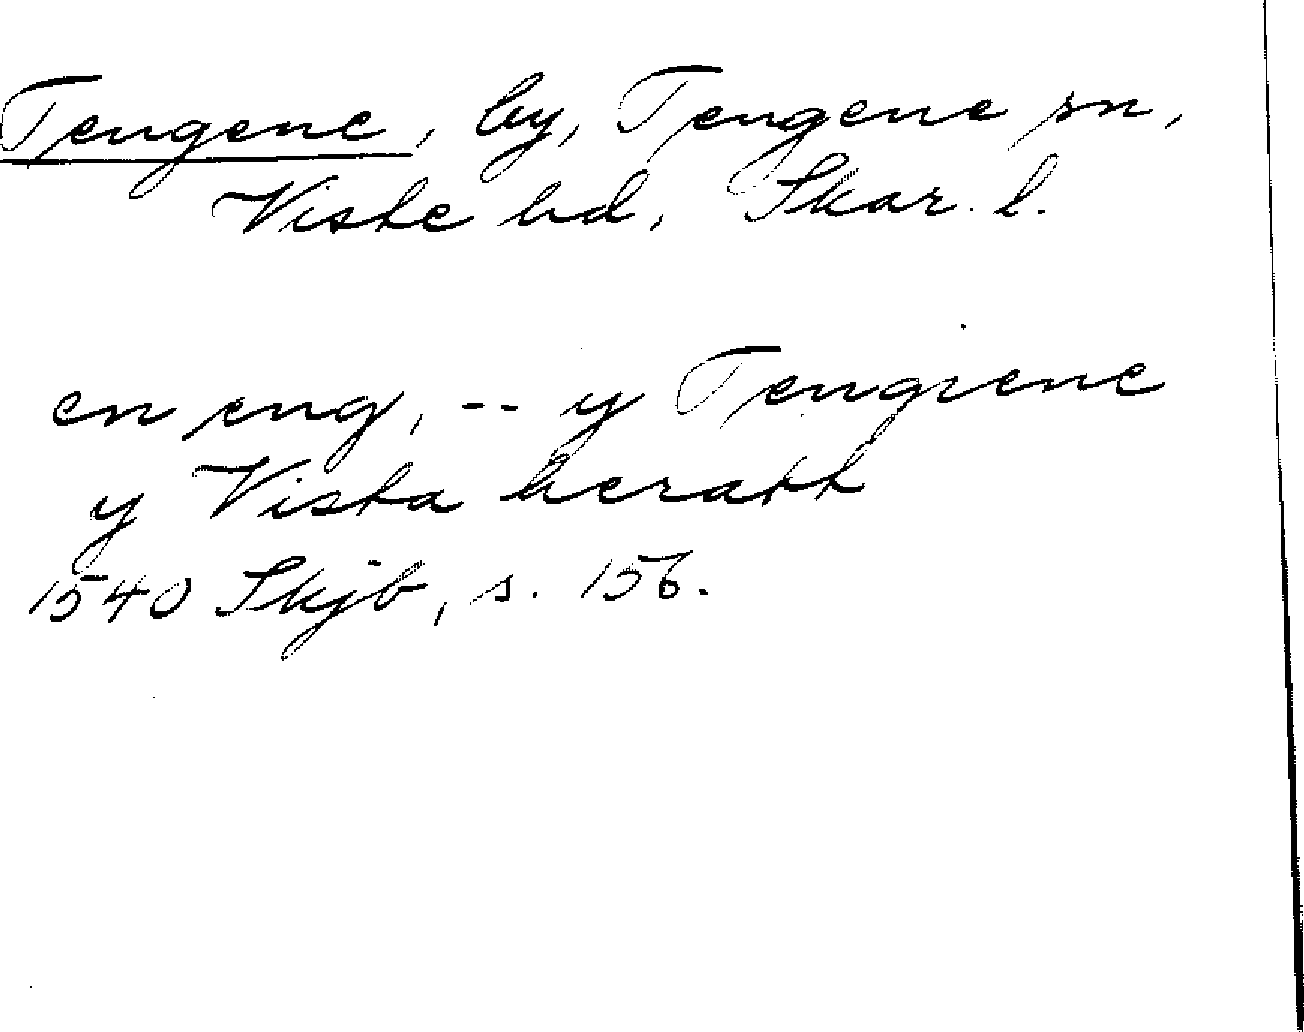 Tengene, by, Tengene sn,
Viste hd, Skar. l.
en eng, -- y Tengiene
y Vista heratt
1540 Skjb, s. 156.